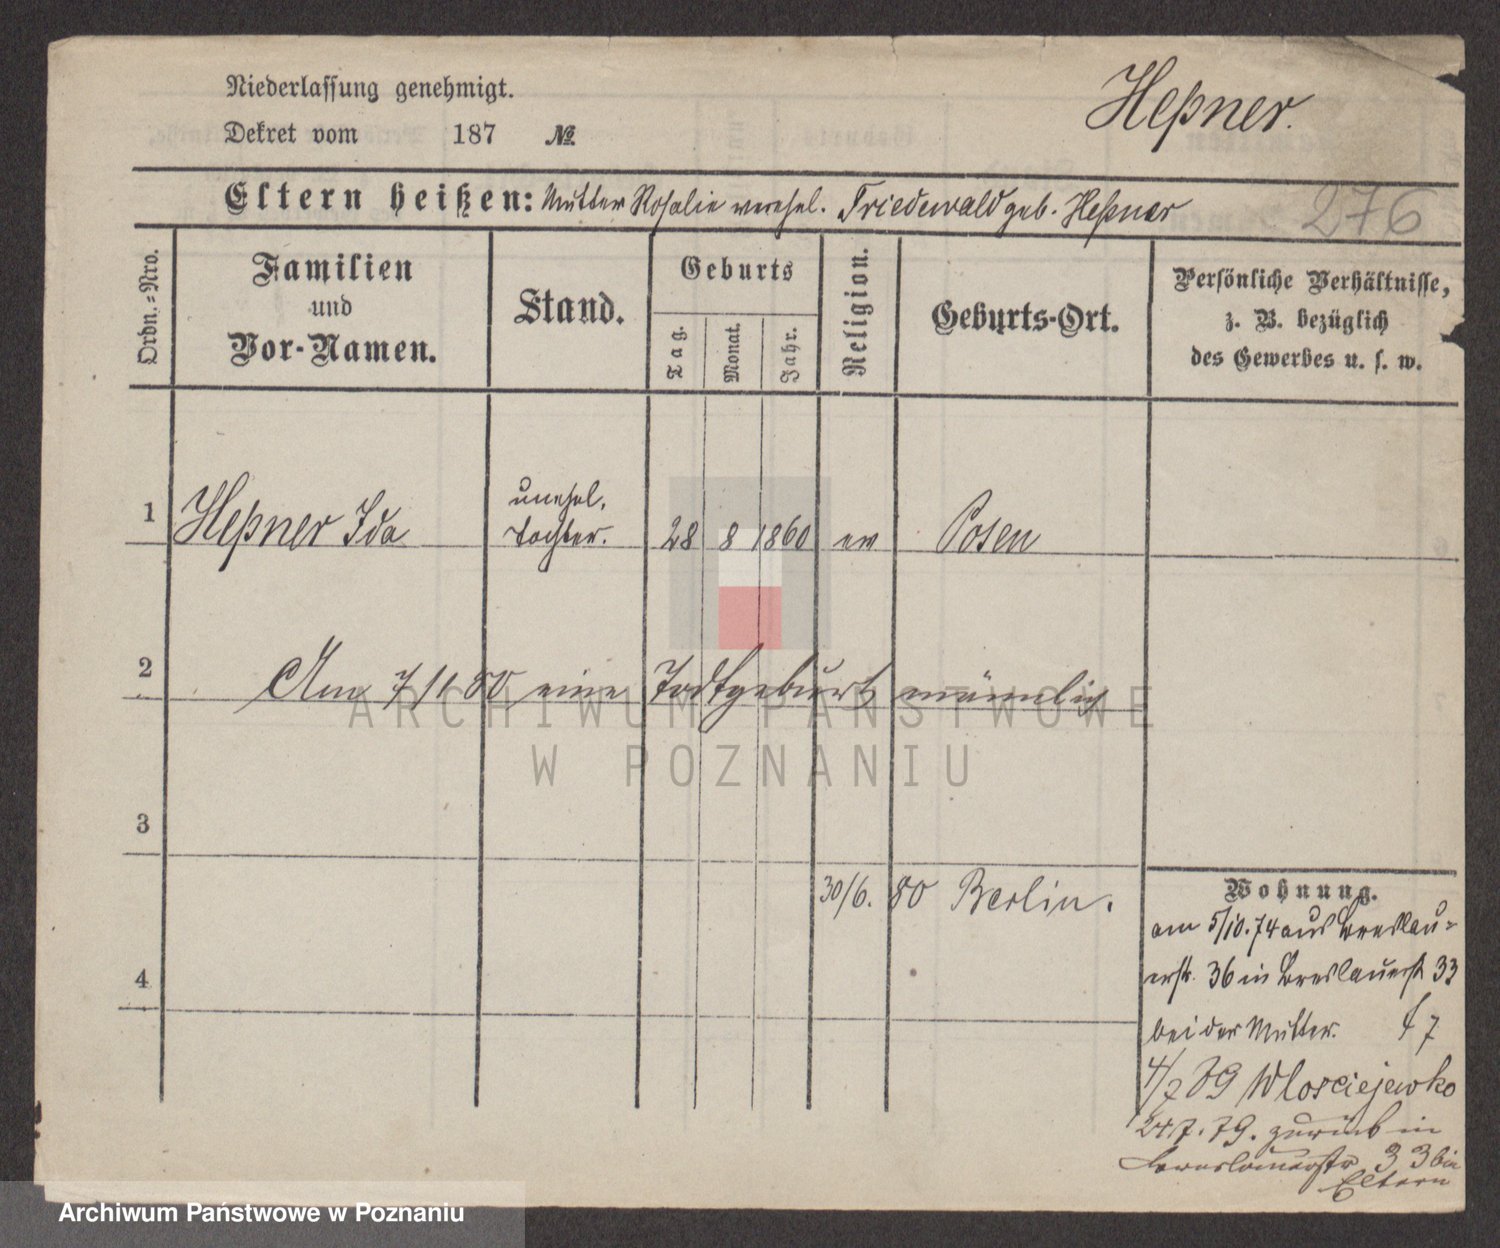 Niederlassung genehmigt.
Dekret vom 187 №
Hepner.
Eltern heißen: Mutter Rosalie verehel. Friedewald geb. Hepner
276
Ordn.-Nro.
Familien
und
Vor-Namen.
Stand.
Geburts
Tag.
Monat.
Jahr.
Religion.
Geburts-Ort.
Persönliche Verhältnisse,
z. B. bezüglich
des Gewerbes u. s. w.
1 Hepner Ida
unehel.
Tochter.
28 8 1860 ev Posen
2 Am 7/1 80 eine Todtgeburt männlich
ARCHIWUM PAŃSTWOWE
W POZNANIU
3
30/6. 80 Berlin.
4
Wohnung.
am 5/10.74 aus Breslau-
erstr. 36 in Breslauerst 33
bei der Mutter. 7
4/7 79 Wlosciejewko
24.7.79. zurück in
Breslauerstr 33 bei
Eltern
Archiwum Państwowe w Poznaniu